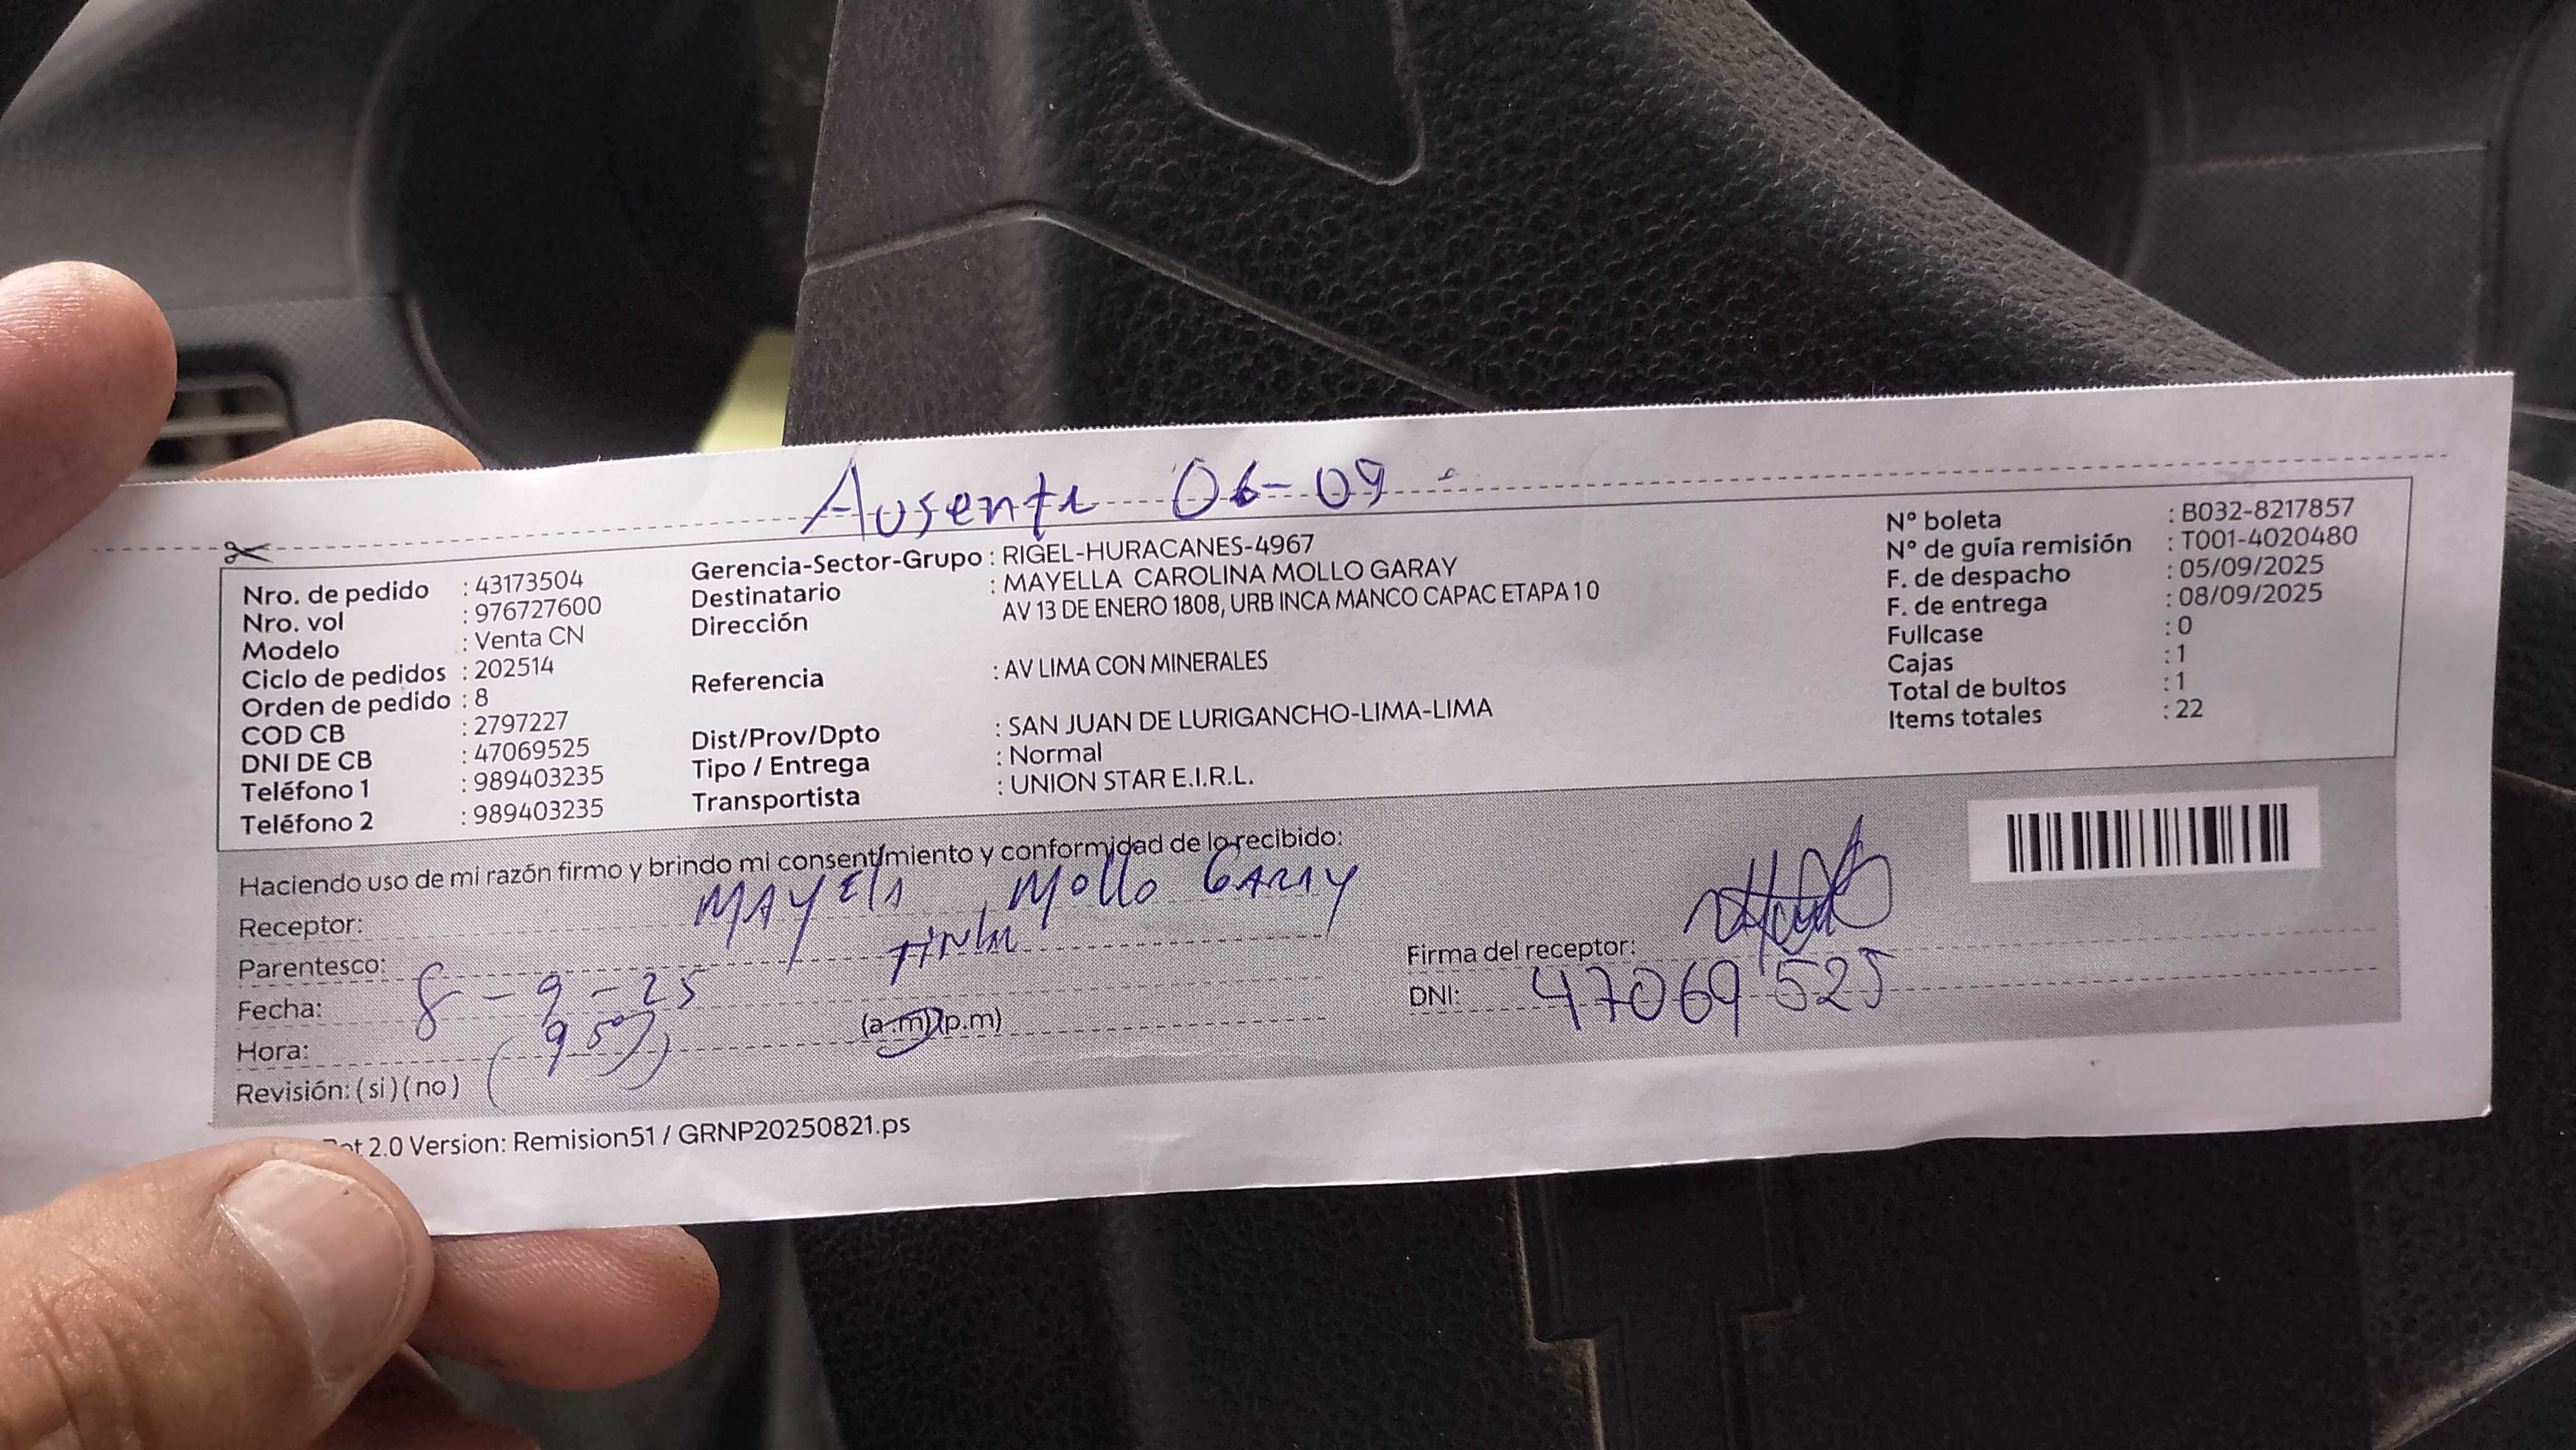 Ausente 06-09 -
Nro. de pedido : 43173504
Nro. vol : 976727600
Modelo : Venta CN
Ciclo de pedidos : 202514
Orden de pedido : 8
COD CB : 2797227
DNI DE CB : 47069525
Teléfono 1 : 989403235
Teléfono 2 : 989403235
Gerencia-Sector-Grupo : RIGEL-HURACANES-4967
Destinatario : MAYELLA CAROLINA MOLLO GARAY
Dirección AV 13 DE ENERO 1808, URB INCA MANCO CAPAC ETAPA 1 0
Referencia : AV LIMA CON MINERALES
Dist/Prov/Dpto : SAN JUAN DE LURIGANCHO-LIMA-LIMA
Tipo / Entrega : Normal
Transportista : UNION STAR E.I.R.L.
N° boleta : B032-8217857
N° de guía remisión : T001-4020480
F. de despacho : 05/09/2025
F. de entrega : 08/09/2025
Fullcase : 0
Cajas : 1
Total de bultos : 1
Items totales : 22
Haciendo uso de mi razón firmo y brindo mi consentimiento y conformidad de lo recibido:
Receptor: MAYEla Mollo GARAY
Parentesco:
Fecha: 8-9-25
Hora: (a.m)(p.m)
Revisión: (si) (no)
Firma del receptor:
DNI: 47069525
2.0 Version: Remision51 / GRNP20250821.ps